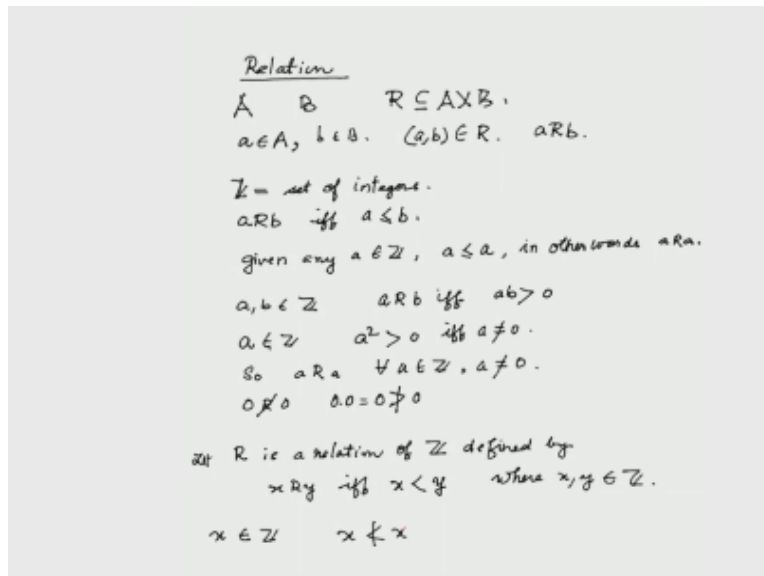 Relation
A B R ⊆ A×B.
a∈A, b∈B. (a,b)∈R. aRb.
ℤ = set of integers.
aRb iff a≤b.
given any a∈ℤ, a≤a, in other words aRa.
a,b∈ℤ aRb iff ab>0
a∈ℤ a²>0 iff a≠0.
So aRa ∀a∈ℤ, a≠0.
0R̸0 0.0=0≯0
R is a relation of ℤ defined by
xRy iff x<y where x,y∈ℤ.
x∈ℤ x≮x